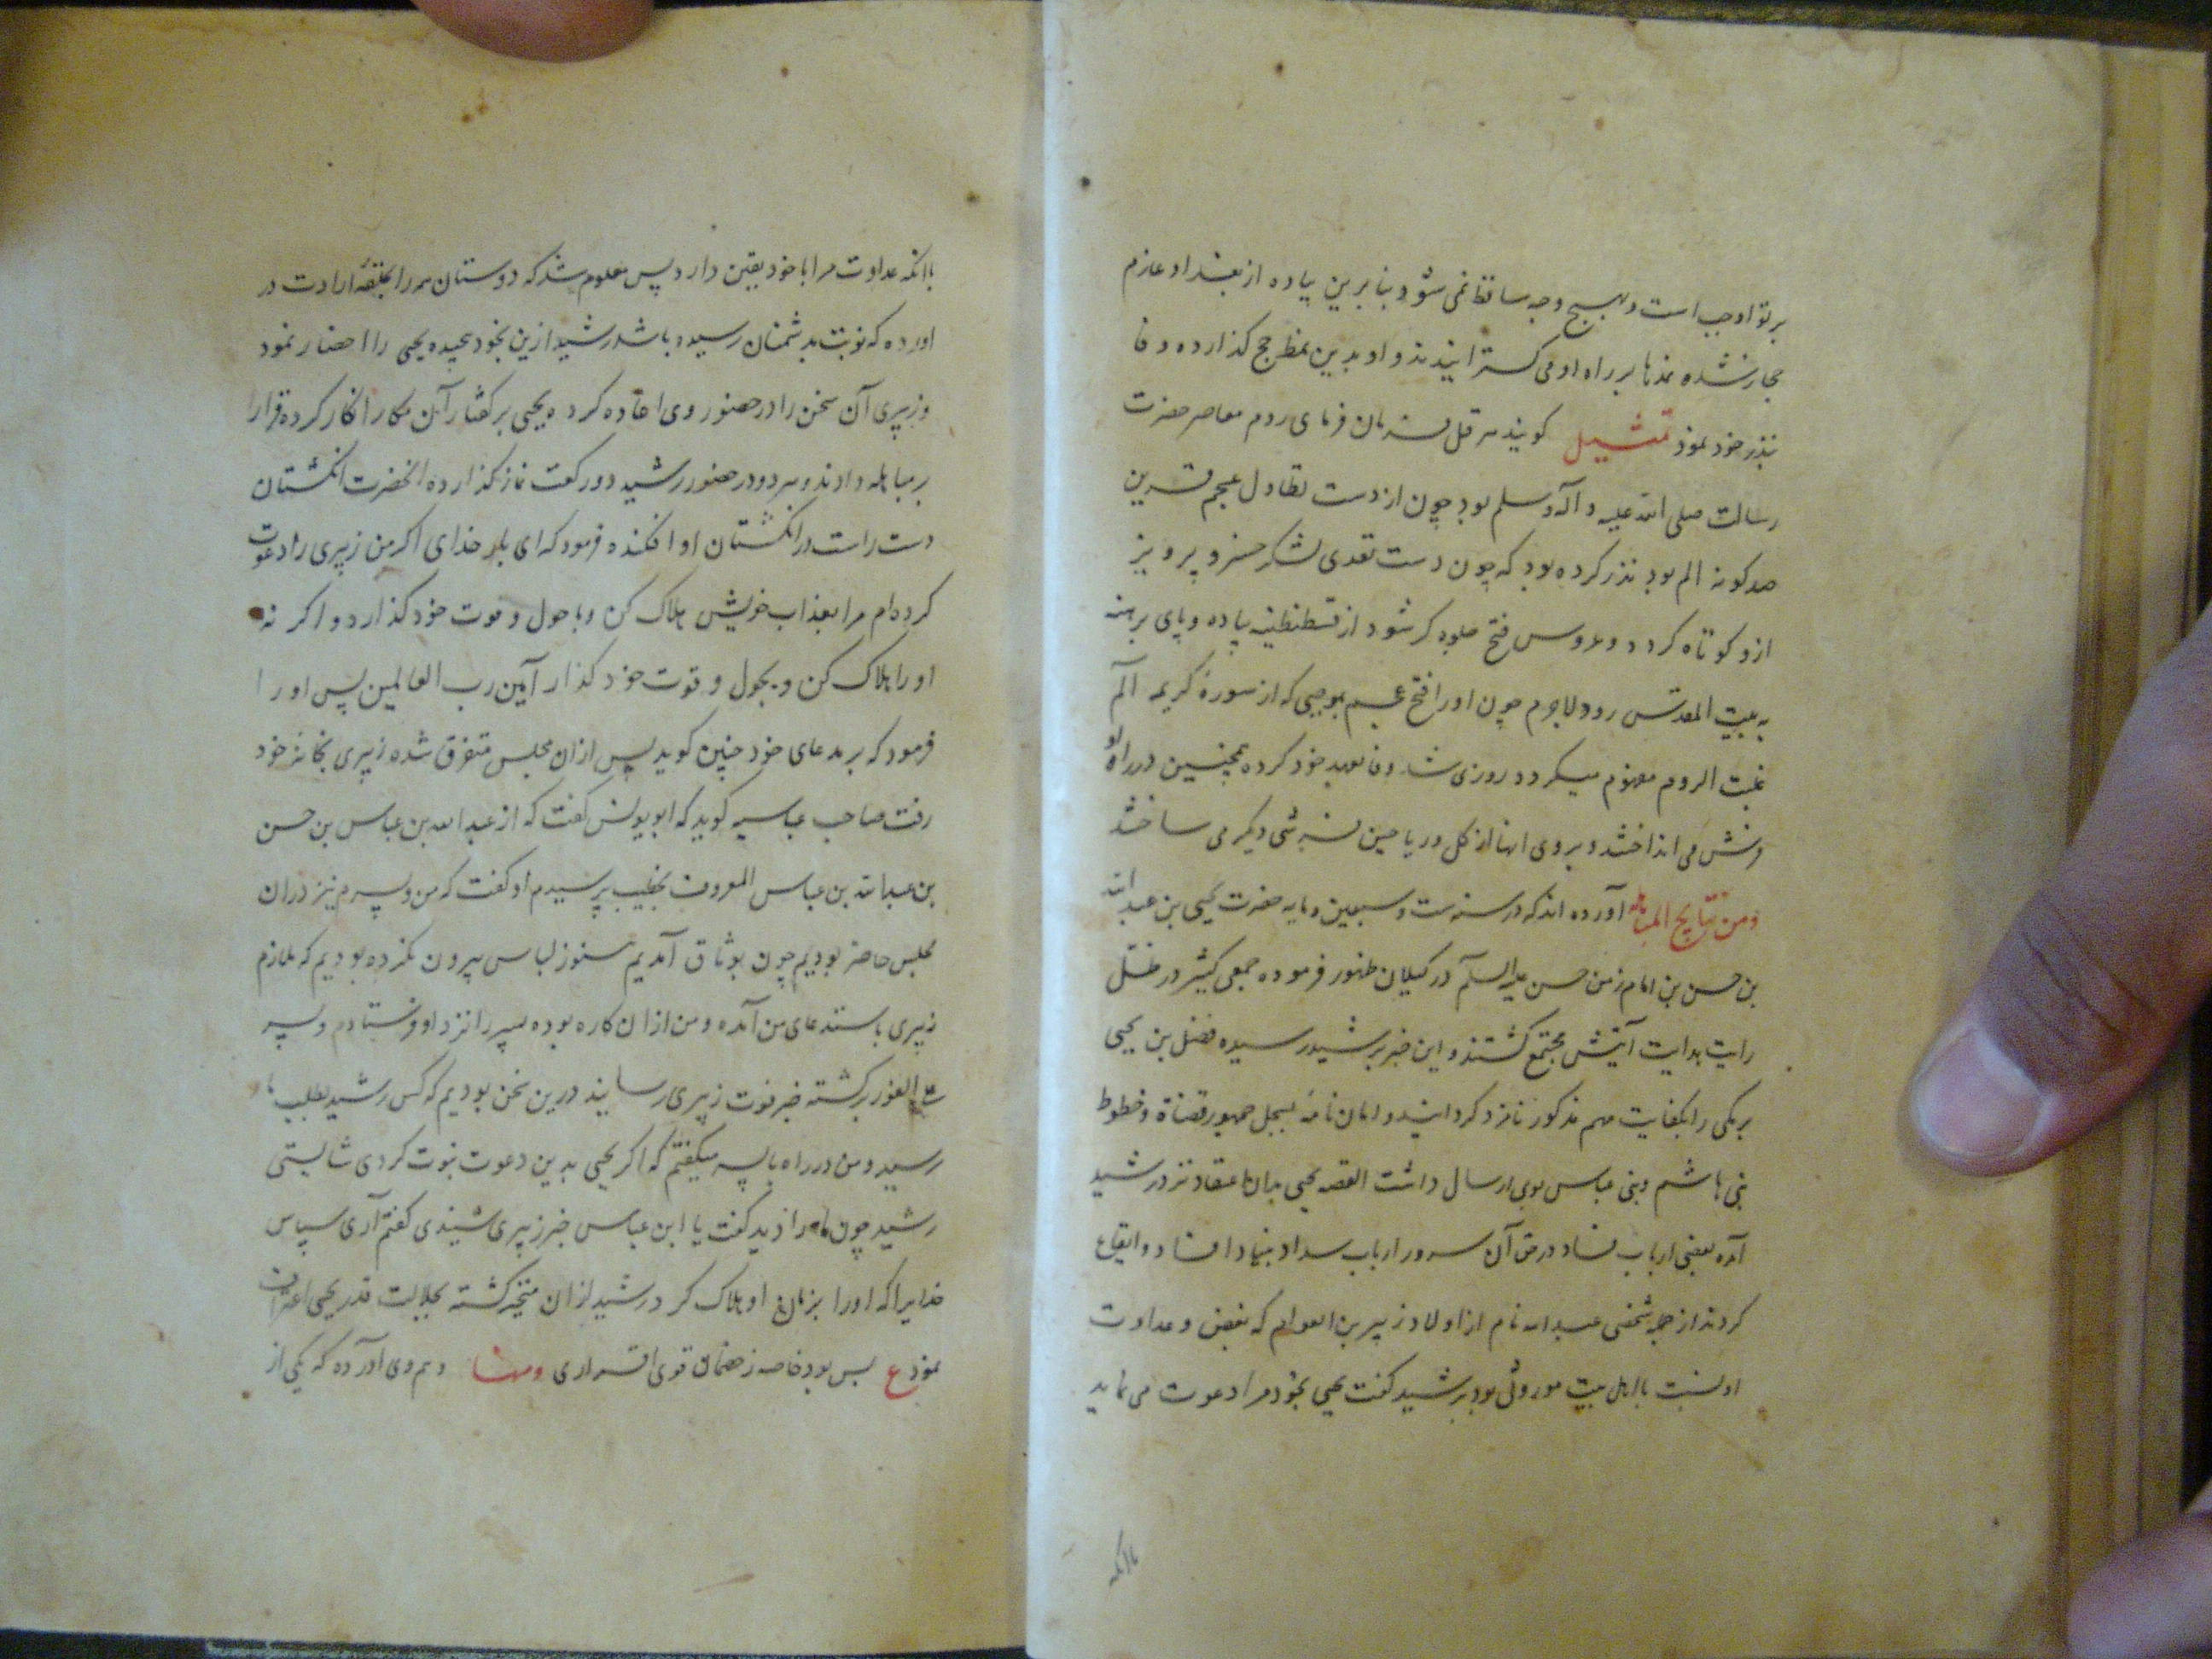 بر تو اوجب است و بهیچ وجه ساقط نمی شود بنا برین پیاده از بغداد عازم
حجاز شده نمدها بر راه او می کسترانیدند و او بدین نمط حج کذارده وفا
بنذر خود نمود تمثیل کویند هرقل فرمان فرمای روم معاصر حضرت
رسالت صلی الله علیه و آله و سلم بود چون از دست تطاول عجم قرین
صدکونه الم بود نذر کرده بود که چون دست تعدی لشکر خسرو پرویز
ازو کوتاه کردد و عروس فتح جلوه کر شود از قسطنطنیه پیاده و پای برهنه
به بیت المقدس رود لاجرم چون او را فتح عجم بموجبی که از سوره کریمه الم
غلبت الروم مفهوم میکردد روزی شد وفا بعهد خود کرده همچنین در راه او
فرش می انداختند و بروی انها از کل و ریاحین فرشی دیکر می ساختند
ومن نتایج المباهله آورده اند که در سنه ست و سبعین و مایه حضرت یحیی بن عبدالله
بن حسن بن امام زمن حسن علیه السلام در کیلان ظهور فرموده جمعی کثیر در ظل
رایت هدایت آیتش مجتمع کشتند و این خبر برشید رسیده فضل بن یحیی
برمکی را بکفایت مهم مذکور نامزد کردانید و امان نامه بسجل جمهور قضاة و خطوط
بنی هاشم و بنی عباس بوی ارسال داشت القصه یحیی بدان اعتقاد نزد رشید
آمده بعضی ارباب فساد در حق آن سرور ارباب سداد بنیاد افساد و ایقاع
کردند از جمله شخصی عبدالله نام از اولاد زبیر بن العوام که بغض و عداوت
او نسبت باهل بیت موروثی بود برشید کفت یحیی بخود مرا دعوت می نماید
باانکه
باانکه عداوت مرا با خود یقین دارد پس معلوم شد که دوستان همه را بحلقه ارادت در
اورده که نوبت بدشمنان رسیده باشد رشید ازین بخود پیچیده یحیی را احضار نمود
و زبیری آن سخن را در حضور وی اعاده کرده یحیی بر کفتار آن مکار انکار کرده قرار
بر مباهله دادند و هر دو در حضور رشید دو رکعت نماز کذارده انحضرت انکشتان
دست راست در انکشتان او افکنده فرمود که ای بار خدای اکر من زبیری را دعوت
کرده ام مرا بعذاب خویش هلاک کن و با حول و قوت خود کذار و اکر نه
او را هلاک کن و بحول و قوت خود کذار آمین رب العالمین پس او را
فرمود که بر مدعای خود چنین کوید پس ازان مجلس متفرق شده زبیری بخانه خود
رفت صاحب عباسیه کوید که ابو یونس کفت که از عبدالله بن عباس بن حسن
بن عبدالله بن عباس المعروف بخطیب پرسیدم او کفت که من و پسرم نیز دران
مجلس حاضر بودیم چون بوثاق آمدیم هنوز لباس بیرون نکرده بودیم که ملازم
زبیری باستدعای من آمده و من ازان کاره بوده پسر را نزد او فرستادم و پسر
علی الفور برکشته خبر فوت زبیری رسانید درین سخن بودیم که کس رشید بطلب ما
رسید و من در راه با پسر میکفتم که اکر یحیی بدین دعوت نبوت کردی شایستی
رشید چون ما را دید کفت یا ابن عباس خبر زبیری شنیدی کفتم آری سپاس
خدایرا که او را بزبان او هلاک کرد رشید ازان متحیر کشته بجلالت قدر یحیی اعتراف
نمود ع بس بود خاصه ز خصمان قوی اقراری ومنها و هم وی آورده که یکی از